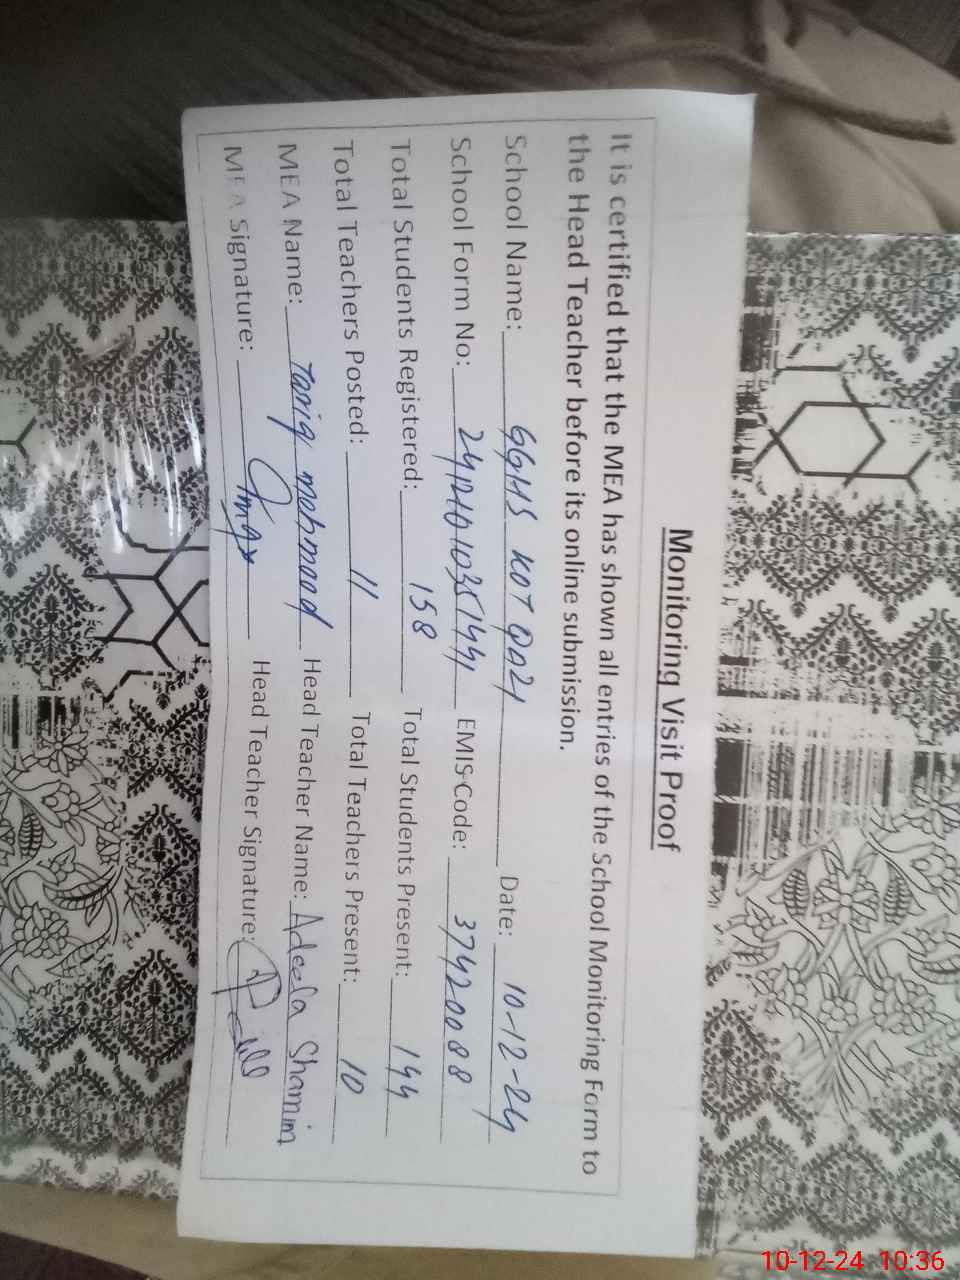 Monitoring Visit Proof
It is certified that the MEA has shown all entries of the School Monitoring Form to
the Head Teacher before its online submission.
School Name: GGHS KOT QAZI Date: 10-12-24
School Form No: EMIS Code: 37420088
Total Students Registered: 158 Total Students Present: 144
Total Teachers Posted: 11 Total Teachers Present: 10
MEA Name: Tariq mehmood Head Teacher Name: Adeela Shamim
MEA Signature: Head Teacher Signature:
10-12-24 10:36